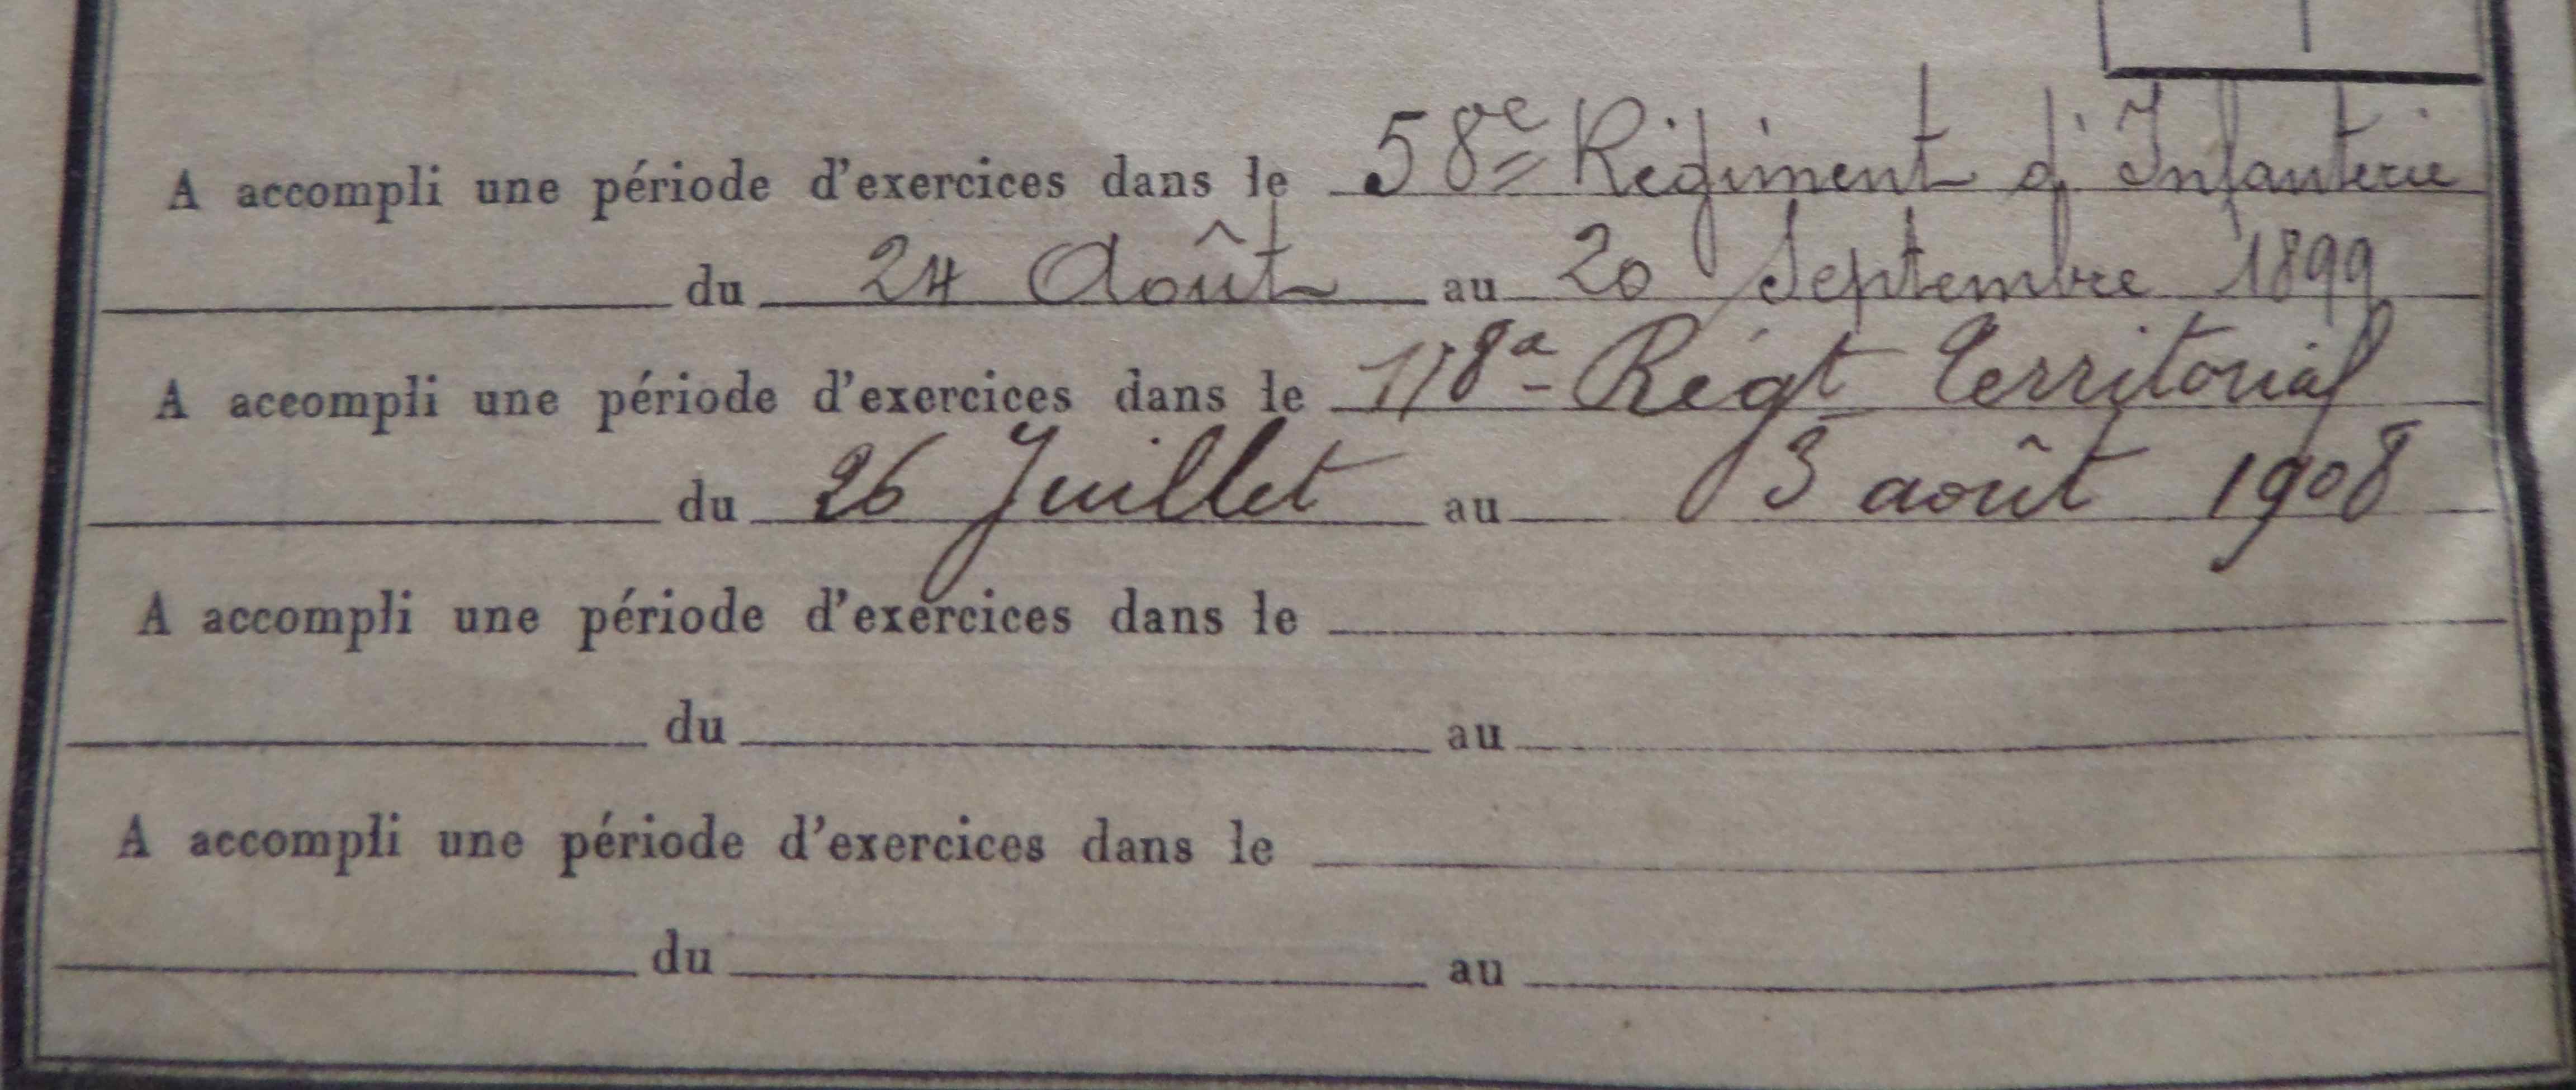 A accompli une période d'exercices dans le 58e Régiment d'Infanterie
du 24 Août au 20 Septembre 1899
A aceompli une période d'exercices dans le 118e Régt Territorial
du 26 Juillet au 3 août 1908
A accompli une période d'exercices dans le
du au
A accompli une période d'exercices dans le
du au